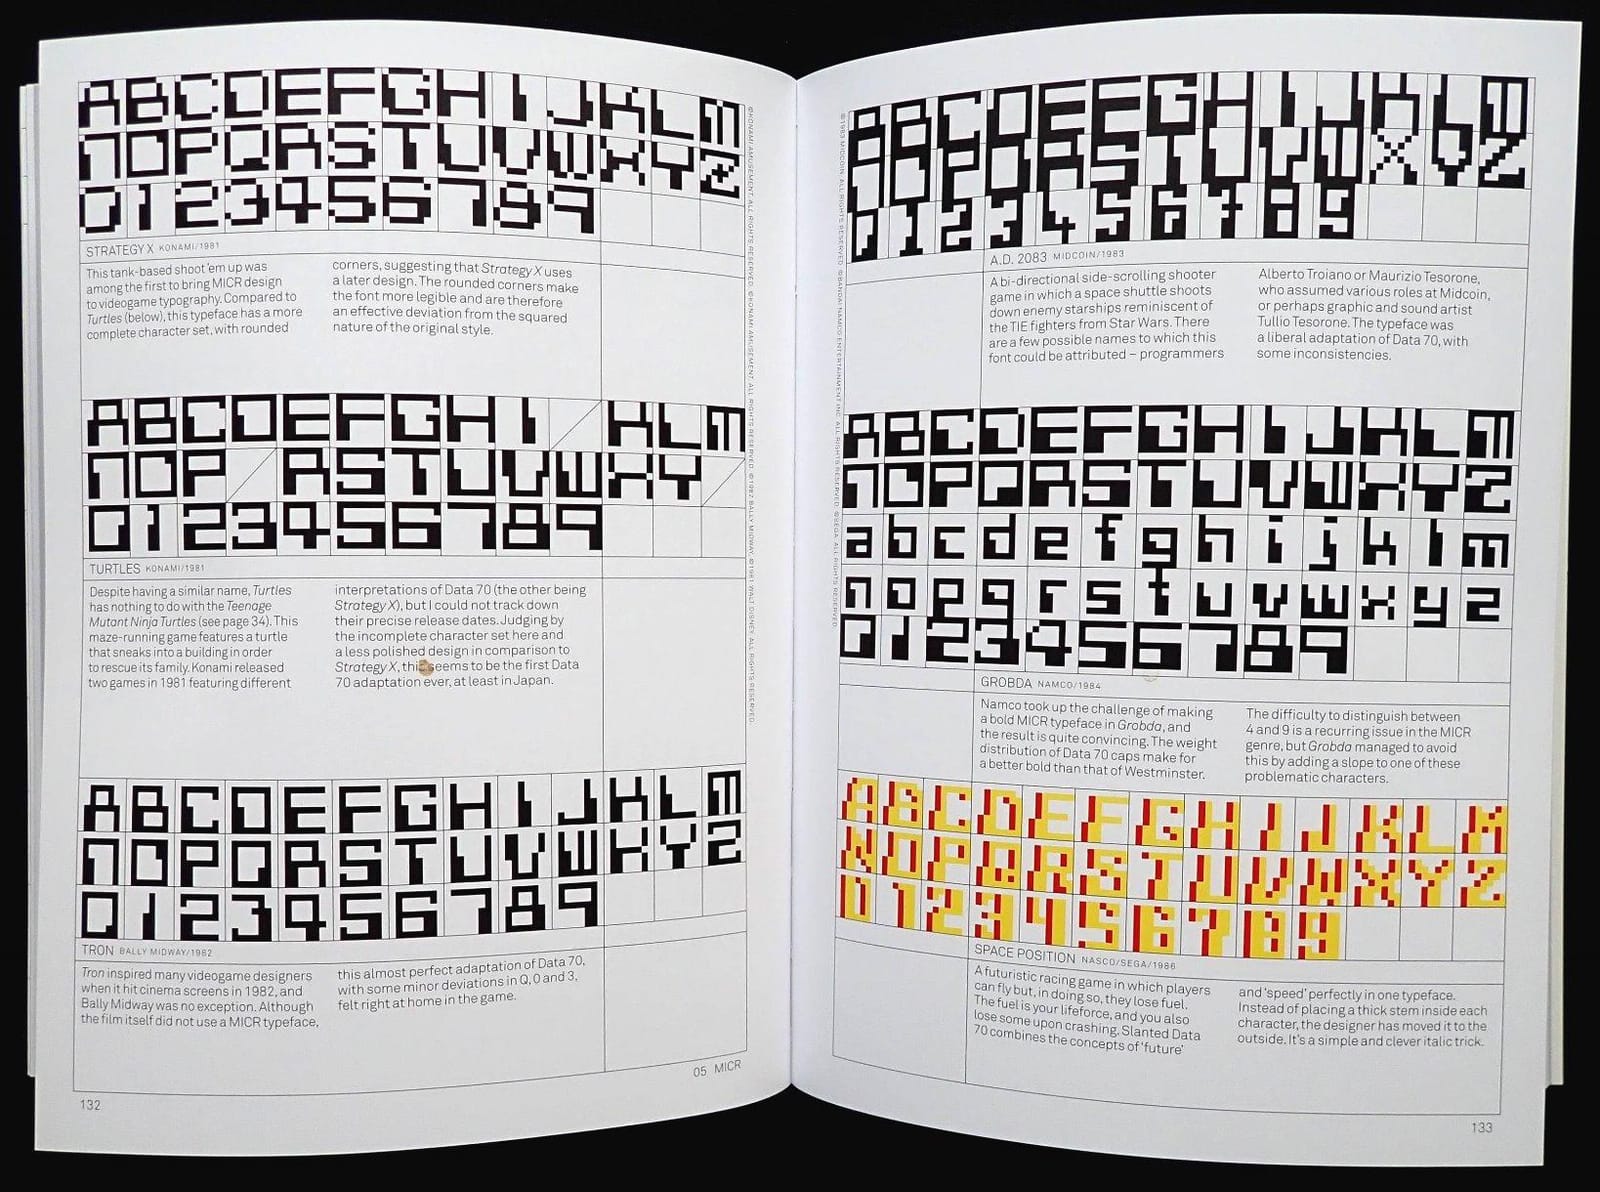 ABCDEFGHIJKLM
NOPQRSTUVWXYZ
0123456789
STRATEGY X KONAMI/1981
This tank-based shoot 'em up was
among the first to bring MICR design
to videogame typography. Compared to
Turtles (below), this typeface has a more
complete character set, with rounded
corners, suggesting that Strategy X uses
a later design. The rounded corners make
the font more legible and are therefore
an effective deviation from the squared
nature of the original style.
ABCDEFGHI KLM
NOP RSTUVWXY
0123456789
TURTLES KONAMI/1981
Despite having a similar name, Turtles
has nothing to do with the Teenage
Mutant Ninja Turtles (see page 34). This
maze-running game features a turtle
that sneaks into a building in order
to rescue its family. Konami released
two games in 1981 featuring different
interpretations of Data 70 (the other being
Strategy X), but I could not track down
their precise release dates. Judging by
the incomplete character set here and
a less polished design in comparison to
Strategy X, this seems to be the first Data
70 adaptation ever, at least in Japan.
ABCDEFGHIJKLM
NOPQRSTUVWXYZ
0123456789
TRON BALLY MIDWAY/1982
Tron inspired many videogame designers
when it hit cinema screens in 1982, and
Bally Midway was no exception. Although
the film itself did not use a MICR typeface,
this almost perfect adaptation of Data 70,
with some minor deviations in Q, 0 and 3,
felt right at home in the game.
©KONAMI AMUSEMENT. ALL RIGHTS RESERVED. ©KONAMI AMUSEMENT. ALL RIGHTS RESERVED. ©1982 BALLY MIDWAY. ©1981 WALT DISNEY. ALL RIGHTS RESERVED.
05 MICR
132
©1983 MIDCOIN. ALL RIGHTS RESERVED. ©BANDAI NAMCO ENTERTAINMENT INC. ALL RIGHTS RESERVED. ©SEGA. ALL RIGHTS RESERVED.
ABCDEFGHIJKLM
NOPQRSTUVWXYZ
0123456789
A.D. 2083 MIDCOIN/1983
A bi-directional side-scrolling shooter
game in which a space shuttle shoots
down enemy starships reminiscent of
the TIE fighters from Star Wars. There
are a few possible names to which this
font could be attributed – programmers
Alberto Troiano or Maurizio Tesorone,
who assumed various roles at Midcoin,
or perhaps graphic and sound artist
Tullio Tesorone. The typeface was
a liberal adaptation of Data 70, with
some inconsistencies.
ABCDEFGHIJKLM
NOPQRSTUVWXYZ
abcdefghijklm
nopqrstuvwxyz
0123456789
GROBDA NAMCO/1984
Namco took up the challenge of making
a bold MICR typeface in Grobda, and
the result is quite convincing. The weight
distribution of Data 70 caps make for
a better bold than that of Westminster.
The difficulty to distinguish between
4 and 9 is a recurring issue in the MICR
genre, but Grobda managed to avoid
this by adding a slope to one of these
problematic characters.
ABCDEFGHIJKLM
NOPQRSTUVWXYZ
0123456789
SPACE POSITION NASCO/SEGA/1986
A futuristic racing game in which players
can fly but, in doing so, they lose fuel.
The fuel is your lifeforce, and you also
lose some upon crashing. Slanted Data
70 combines the concepts of 'future'
and 'speed' perfectly in one typeface.
Instead of placing a thick stem inside each
character, the designer has moved it to the
outside. It's a simple and clever italic trick.
133